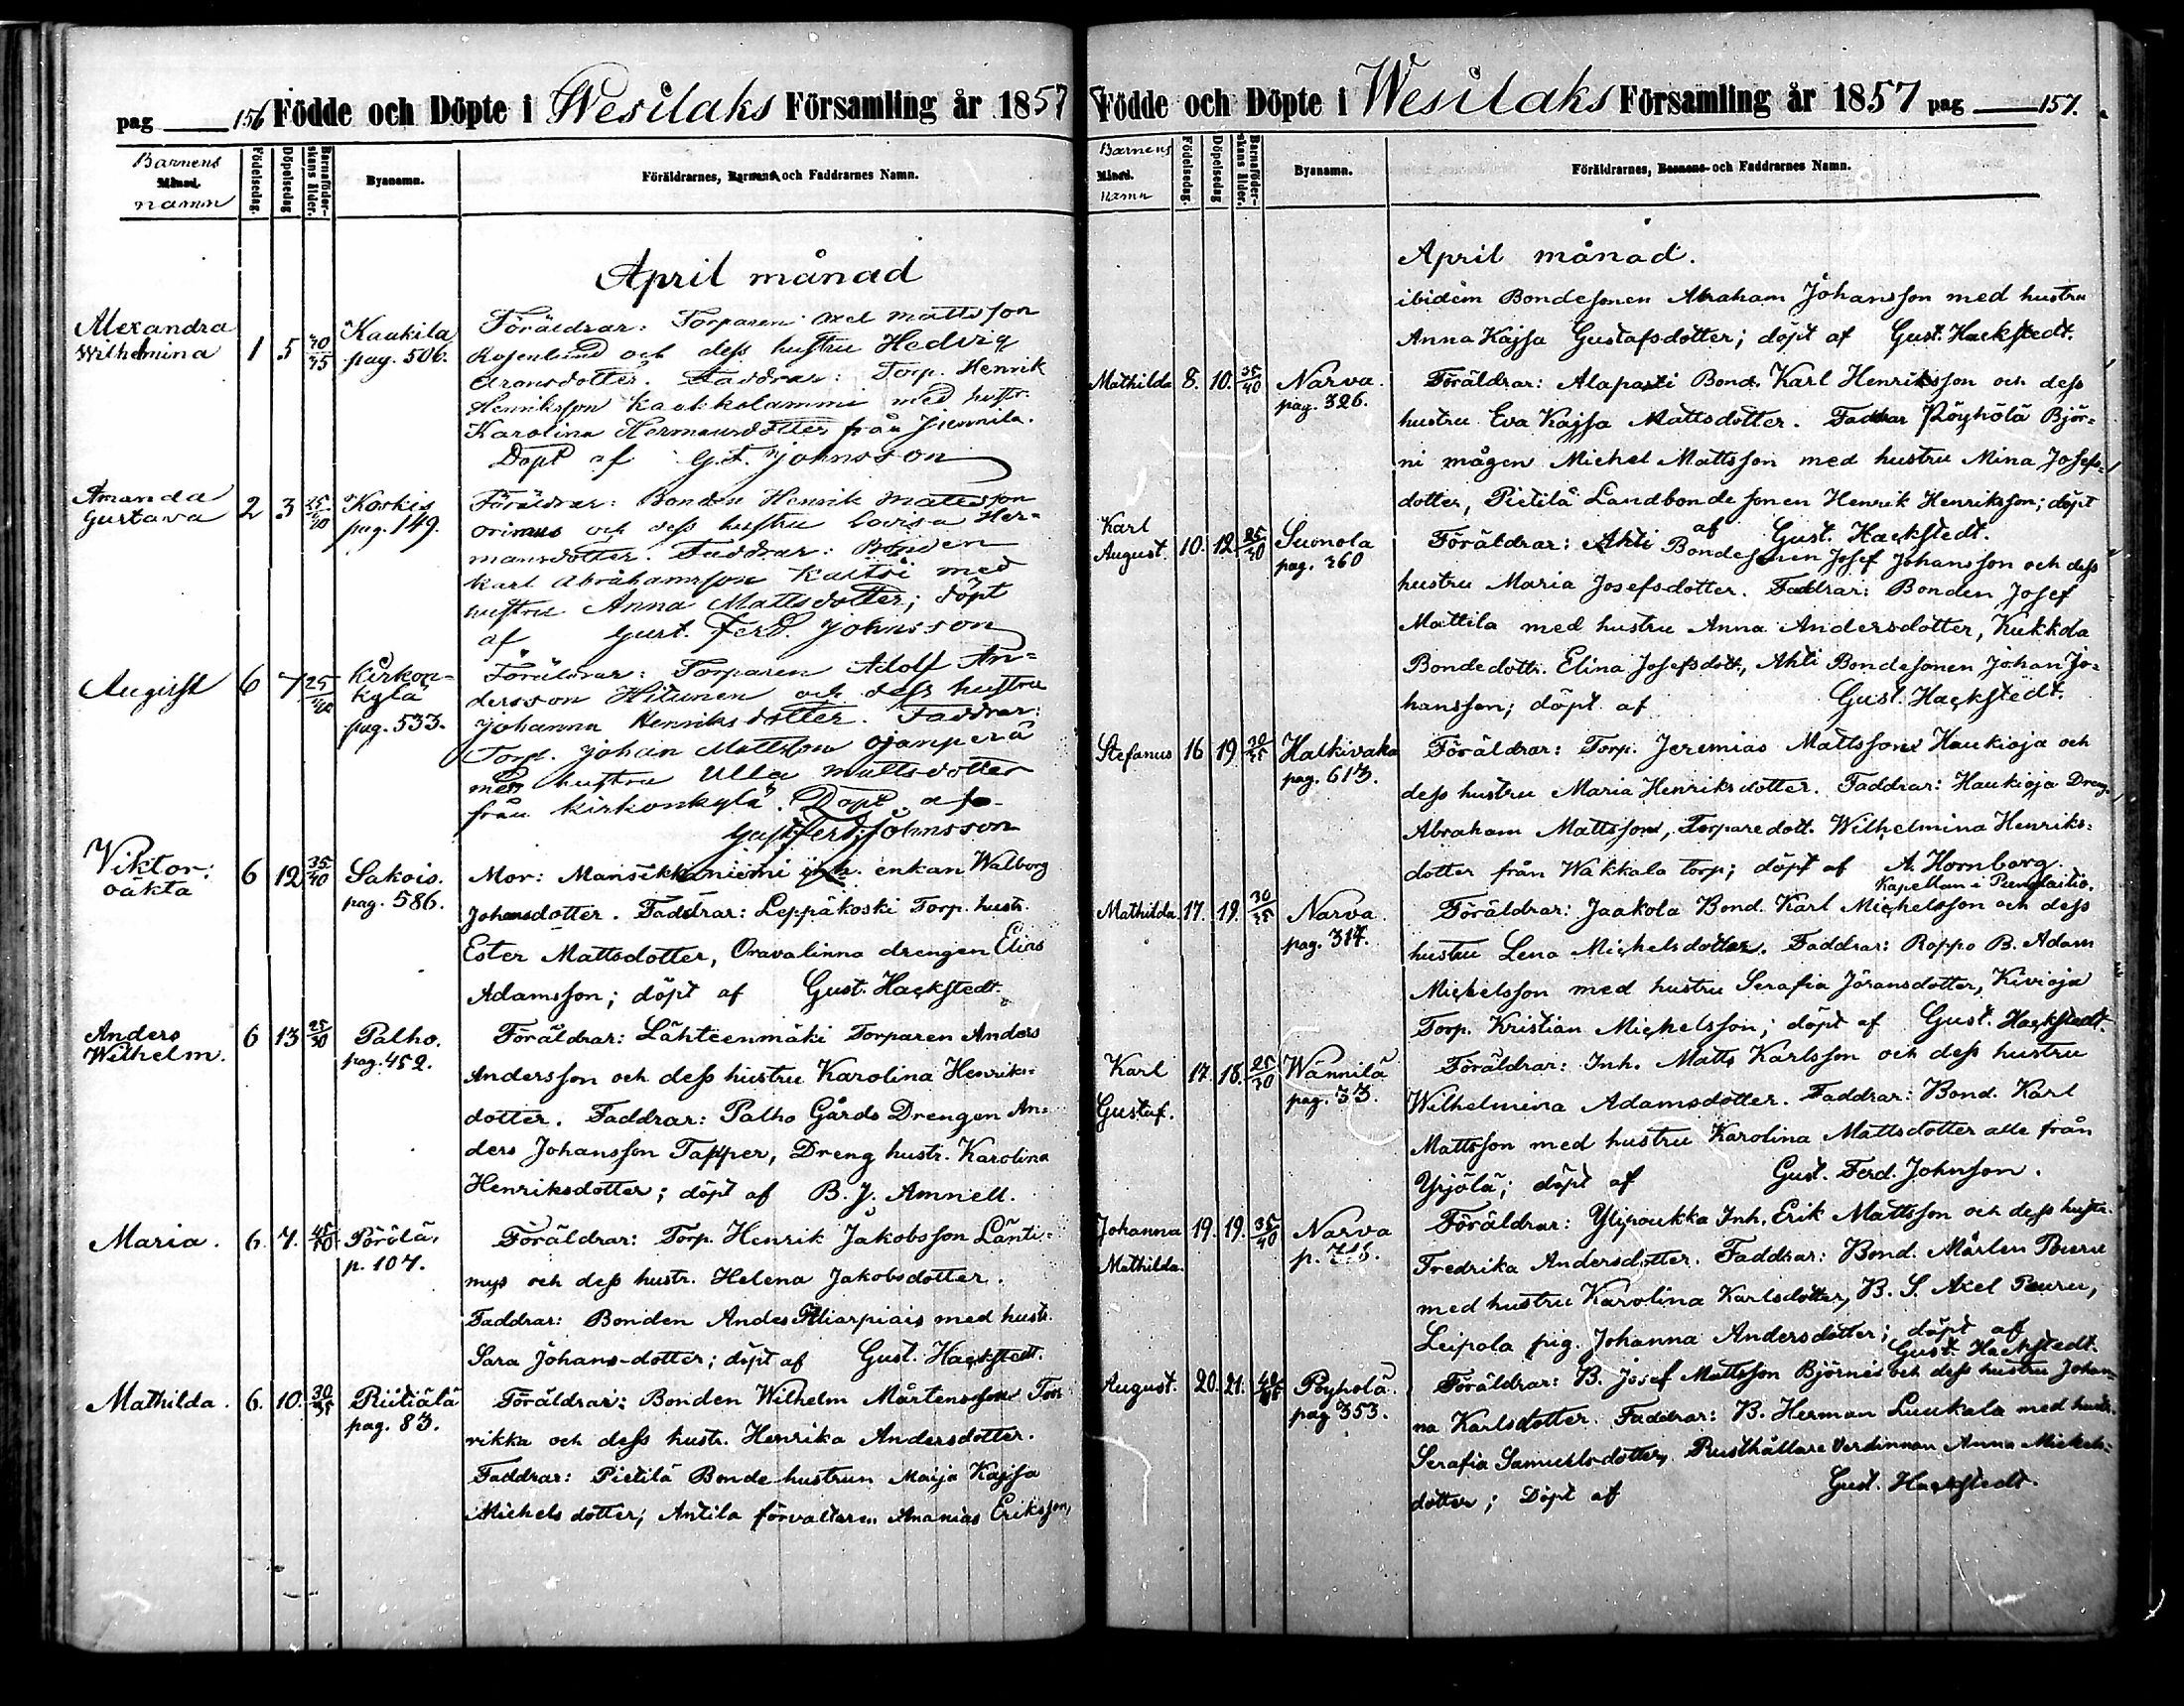 pag 156 Födde och Döpte i Wesilaks Församling år 1857
Barnens
Månad.
namn
Födelsedag.
Döpelsedag
Barnaföder-
skans ålder.
Byanamn.
Föräldrarnes, Barnens och Faddrarnes Namn.
April månad
Alexandra
Wilhelmina
1 5 30/35
Kaakila
pag. 506.
Föräldrar: Torparen Axel Mattsson
Rosenlund och dess hustru Hedvig
Aronsdotter. Faddrar: Torp. Henrik
Henriksson Kaakkolammi med hustr.
Karolina Hermansdotter från
Döpt af G.F. Johnsson
Amanda
Gustava
2 3
Koskis
pag. 149.
Föräldrar: Bonden Henrik Mattsson
Orimus och dess hustru Lovisa Her-
mansdotter. Faddrar: Bonden
Karl Abrahamsson Kaltsi med
hustru Anna Mattsdotter; döpt
af Gust. Ferd. Johnsson
August
6 7
Kirkon-
kylä
pag. 533.
Föräldrar: Torparen Adolf An-
dersson Hitunen och dess hustru
Johanna Henriksdotter. Faddrar:
Torp. Johan Mattsson Ojanperä
med hustru Ulla Mattsdotter
från Kirkonkylä. Döpt af
Gust. Ferd. Johnsson
Viktor.
oäkta
6 12 35/40
Sakois.
pag. 586.
Mor: Mansikkaniemi inh. enkan Walborg
Johansdotter. Faddrar: Leppäkoski Torp. hustr.
Ester Mattsdotter, Oravalinna drengen Elias
Adamsson; döpt af Gust. Hackstedt.
Anders
Wilhelm.
6 13 25/30
Palho.
pag. 452.
Föräldrar: Lähteenmäki Torparen Anders
Andersson och dess hustru Karolina Henriks-
dotter. Faddrar: Palho Gårds Drengen An-
ders Johansson Tapper, Dreng hustr. Karolina
Henriksdotter; döpt af B. J. Amnell.
Maria.
6. 7.
Pörölä,
p. 107.
Föräldrar: Torp. Henrik Jakobsson Länti-
mys och dess hustr. Helena Jakobsdotter.
Faddrar: Bonden Andes Hiarpiais med hustr.
Sara Johans-dotter; döpt af Gust. Hackstedt.
Mathilda.
6. 10. 30/35
Riitiälä
pag. 83.
Föräldrar: Bonden Wilhelm Mårtensson Tor-
rikka och dess hustr. Henrika Andersdotter.
Faddrar: Pietilä Bonde hustrun Maija Kajsa
Michels dotter; Antila förvaltaren Ananias Eriksson,
Födde och Döpte i Wesilaks Församling år 1857 pag 157.
Barnens
Månad.
namn
Födelsedag.
Döpelsedag
Barnaföder-
skans ålder.
Byanamn.
Föräldrarnes, Barnens och Faddrarnes Namn.
April månad.
ibidem Bondesonen Abraham Johansson med hustru
Anna Kajsa Gustafsdotter; döpt af Gust. Hackstedt.
Mathilda 8. 10. 35/40
Narva.
pag. 326.
Föräldrar: Alapasti Bond. Karl Henriksson och dess
hustru Eva Kajsa Mattsdotter. Faddrar Pöyhölä Björ-
ni mågen Michel Mattsson med hustru Mina Josefs-
dotter, Pietilä Landbondesonen Henrik Henriksson; döpt
af Gust. Hackstedt.
Karl
August. 10. 12. 25/30
Suonola
pag. 360
Föräldrar: Ahti Bondesonen Josef Johansson och dess
hustru Maria Josefsdotter. Faddrar: Bonden Josef
Mattila med hustru Anna Andersdotter, Kukkola
Bondedottr. Elina Josefsdott., Ahti Bondesonen Johan Jo-
hansson; döpt af Gust. Hackstedt.
Stefanus 16 19
Halkivaha
pag. 613.
Föräldrar: Torp. Jeremias Mattsson Haukioja och
dess hustru Maria Henriksdotter. Faddrar: Haukioja Dreng.
Abraham Mattsson, Torparedott. Wilhelmina Henriks-
dotter från Wakkala torp; döpt af A. Hornborg.
Kapellan i Pungalaitio.
Mathilda. 17. 19. 30/35
Narva.
pag. 314.
Föräldrar: Jaakola Bond. Karl Michelsson och dess
hustru Lena Michelsdotter. Faddrar: Roppo B. Adam
Michelsson med hustru Serafia Jöransdotter, Kivioja
Torp. Kristian Michelsson; döpt af Gust. Hackstedt.
Karl
Gustaf.
17. 18. 25/30
Wännilä
pag. 33.
Föräldrar: Inh. Matts Karlsson och dess hustru
Wilhelmina Adamsdotter. Faddrar: Bond. Karl
Mattsson med hustru Karolina Mattsdotter alle från
Yrjölä; döpt af Gust. Ferd. Johnson.
Johanna
Mathilda.
19. 19. 35/40
Narva
p.
Föräldrar: Ylipoukka Inh. Erik Mattsson och dess hustr.
Fredrika Andersdotter. Faddrar: Bond. Mårten Peuru
med hustru Karolina Karlsdotter, B. S. Axel Peuru,
Leipola pig. Johanna Andersdotter; döpt af
Gust. Hackstedt.
August. 20. 21.
Pöyhölä.
pag 353.
Föräldrar: B. Josef Mattsson Björnis och dess hustru Johan-
na Karlsdotter. Faddrar: B. Herman Luukala med hustr.
Serafia Samuelsdotter, Rusthållare Verdinnan Anna Mickels-
dotter; Döpt af Gust. Hackstedt.